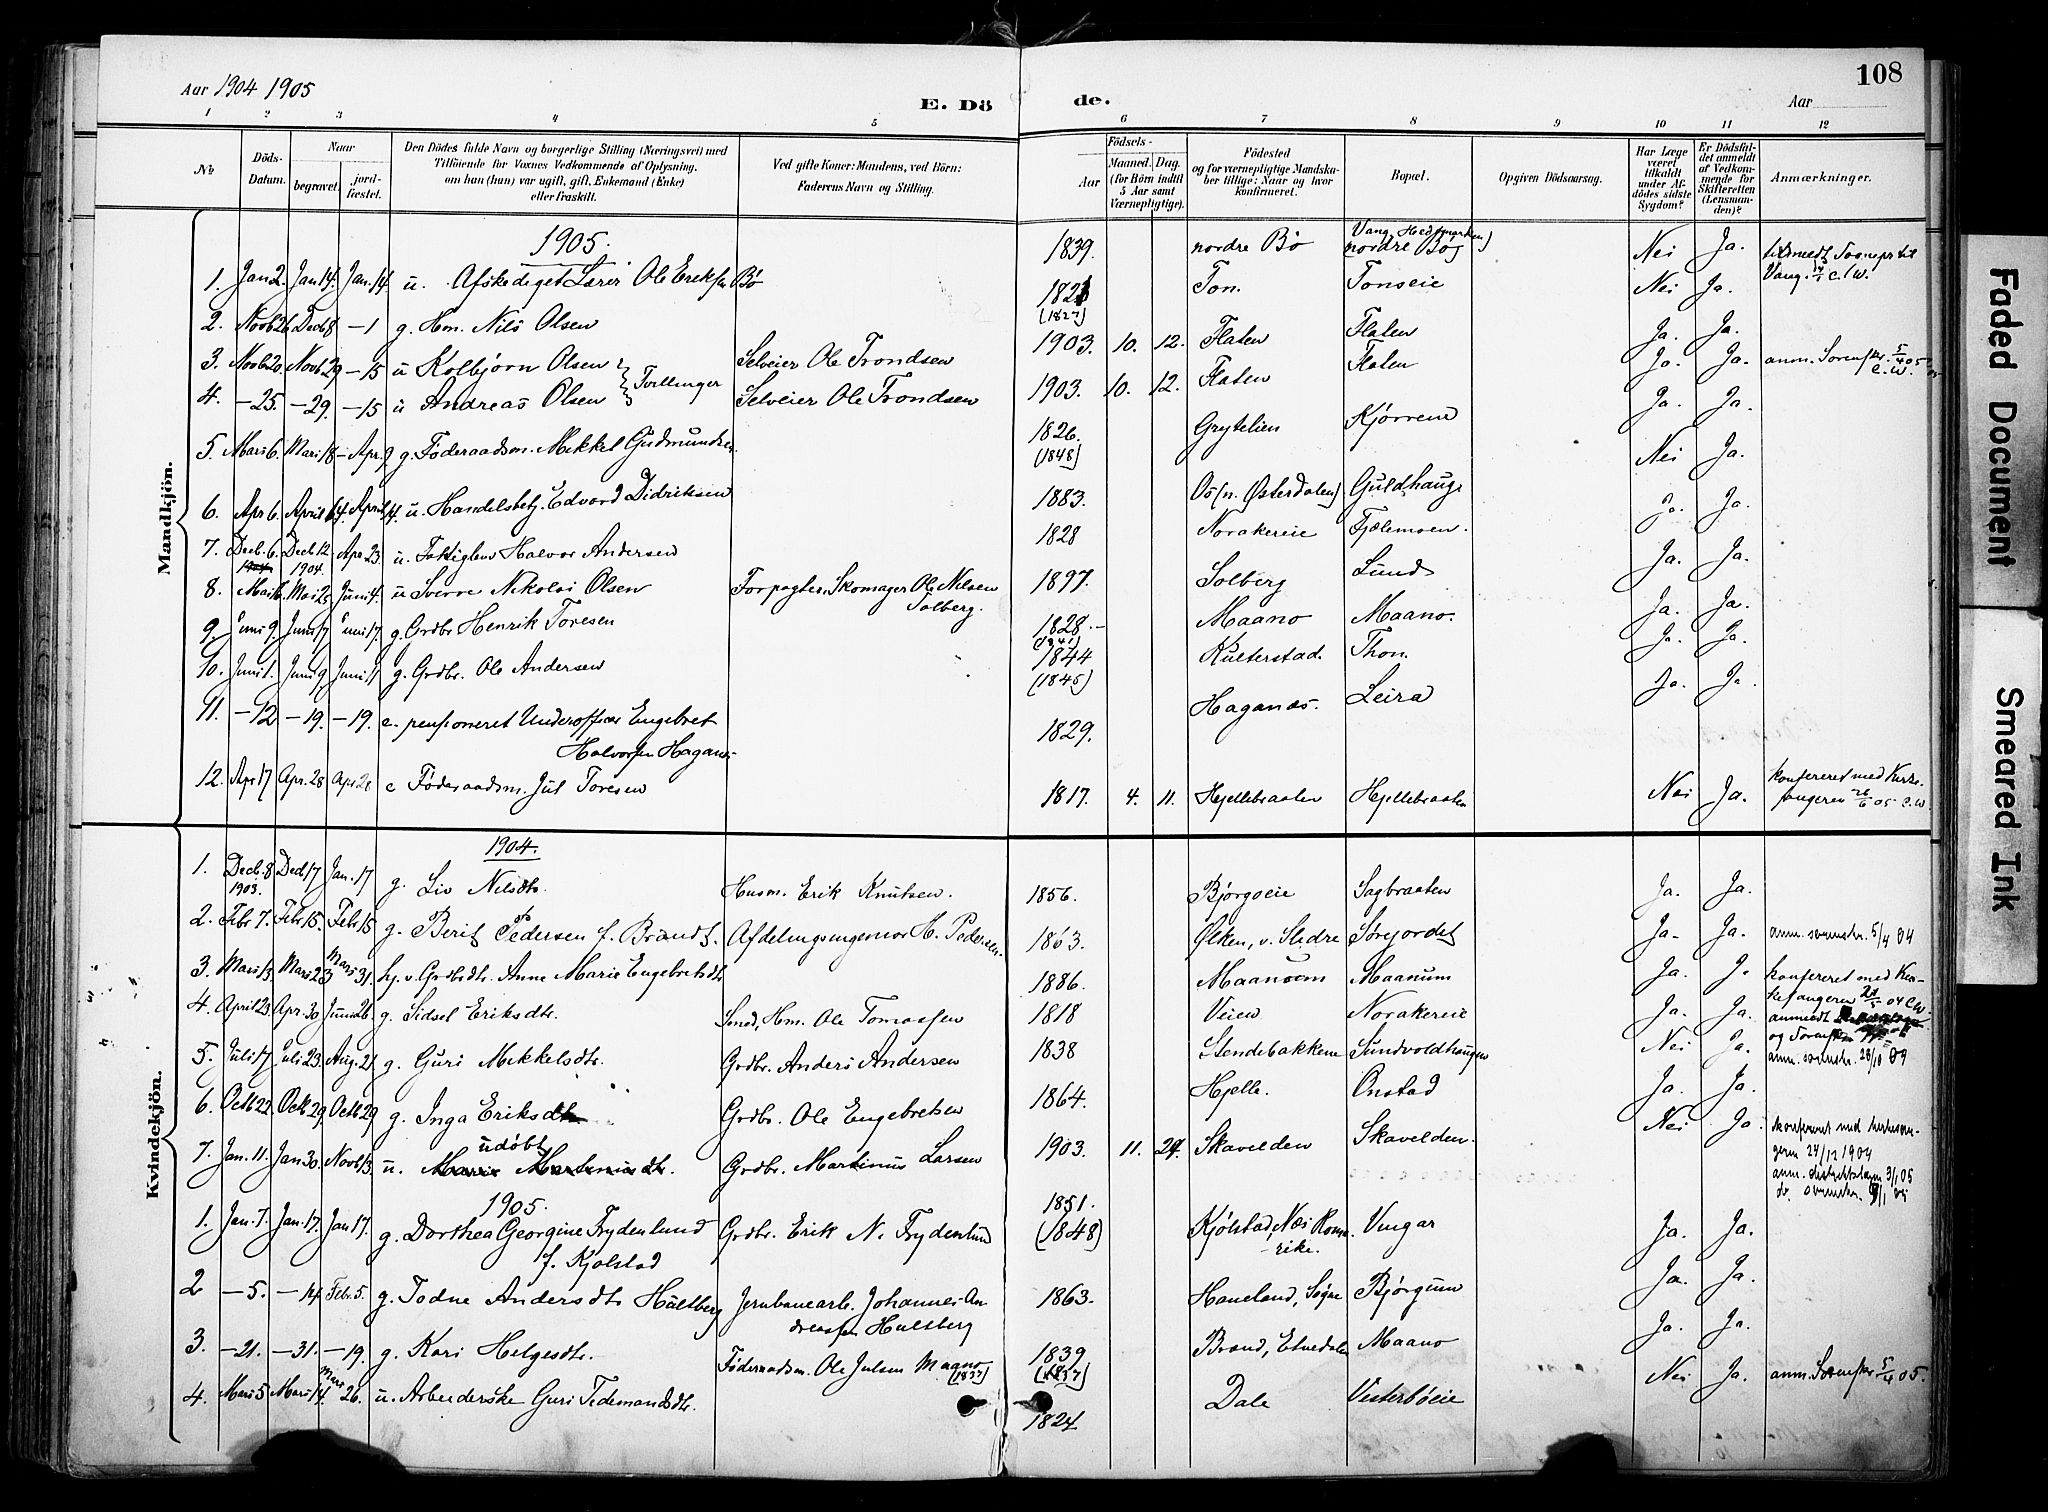 Aar 1904 1905
E. Dö
de.
Aar
108
1 2 3 4 5 6 7 8 9 10 11 12
No
Döds-
Datum.
Naar
begravet.
jord-
fæstet.
Den Dödes fulde Navn og borgerlige Stilling (Næringsvei) med
Tilföiende for Voxnes Vedkommende af Oplysning,
om han (hun) var ugift, gift, Enkemand (Enke)
eller fraskilt.
Ved gifte Koner: Mandens, ved Börn:
Faderens Navn og Stilling.
Födsels-
Aar
Maaned. Dag.
(for Börn indtil
5 Aar samt
Værnepligtige).
Födested
og for værnepligtige Mandska-
ber tillige: Naar og hvor
konfirmeret.
Bopæl.
Opgiven Dödsaarsag.
Har Læge
været
tilkaldt
under Af-
dödes sidste
Sygdom?
Er Dödsfal-
det anmeldt
af Vedkom-
mende for
Skifteretten
(Lensman-
den)?
Anmærkninger.
Mandkjön.
1905.
1. Jan 2. Jan 14. Jan. 14 u. Afskediget Lærer Ole Eriksen Bø 1839. nordre Bø Vang, Hedemarken nordre Bø Nei Ja.
Vang. 14/1 C.W.
2. Novb 26 Decb 8 — 1 g. Hm. Nils Olsen (1827) Ton. Tonseie Nei Ja.
3. Novb 20. Novb 29 — 15 u Kolbjørn Olsen } Tvillinger Selveier Ole Trondsen 1903. 10. 12. Flaten Flaten Ja. Ja.
4. — 25. — 29. — 15 u Andreas Olsen Selveier Ole Trondsen 1903. 10. 12. Flaten Flaten Ja. Ja. anm. Sorenskr. 5/4 05 C.W.
5. Mars 6. Mars 18 — Apr. 9 g. Føderaadsm. Mikkel Gudmundsen 1826. (1848) Grytelien Kjørrene Ja. Ja.
6. Apr 6. April 14. April 14. u. Handelsbetj. Edvard Didriksen 1883. Os (n. Østerdalen) Guldhaug Nei Ja.
7. Decb. 6. 1904. Decb 12 1904. Apr. 23. u. Fattiglem Halvor Andersen 1828 Norakereie Fjelemoen. Ja. Ja.
8. Mai 16. Mai 25 Juni 4. u Sverre Nikolai Olsen Forpagter, Skomager Ole Nilsen Solberg. 1897. Solberg Lund Ja. Ja.
9. Juni 9. Juni 17 Juni 17 g. Grdbr. Henrik Toresen 1828. (1841) Maano Maano. Ja. Ja.
10. Juni 1. Juni 9. Juni 11 g. Grdbr. Ole Andersen 1844 (1845) Kulterstad. Thon. Ja. Ja.
11. — 12 — 19. — 19. e. pensioneret Underofficer Engebret
Halvorsen Haganes 1829. Haganes. Leira Ja. Ja.
12. Apr 17 Apr. 28 Apr 28 e Føderaadsm. Jul Toresen 1817. 4. 11. Hjellebraaten Hjellebraaten Nei Ja. konfereret med Kirke-
sangeren 26/6 05 C.W
Kvindekjön.
1904.
1. Decb. 8 1903. Decb 17 Jan. 17 g. Liv Nilsdtr. Husm. Erik Knutsen. 1856. Bjørgoeie Sagbraaten Ja. Ja.
2. Febr 7. Febr 15. Febr 15 g. Berit Pedersen f. Brandt. Afdelingsingeniør H. Pedersen. 1863. Ølken, v. Slidre Sørejordet Ja. Ja. anm. sorenskr. 5/4 04
3. Mars 13. Mars 23 Mars 31. hj. v. Grdbrdtr. Anne Marie Engebretsdtr. 1886. Maanum Maanum Ja. J. konfereret med Kir-
kesangeren 04 C.W.
4. April 23. Apr. 30 Juni 26. g. Sidsel Eriksdtr. Smed, Hm. Ole Tomassen 1818 Veien Norakereie Ja. Ja. anmeldt
5. Juli 17 Juli 23. Aug. 21 g. Guri Mikkelsdtr. Grdbr. Anders Andersen 1838 Stendebakkene Sundvoldhaugen Nei Ja. anm. sorenskr. 28/10 04
6. Octb 22. Octb 29. Octb 29 g. Inga Eriksdtr Grdbr. Ole Engebretsen 1864. Hjelle. Onstad Ja. Ja.
7. Jan. 11. Jan 30. Novb 13 u. udøbt Marie Martinusdtr. Grdbr. Martinus Larsen 1903. 11. 24. Skavelden Skavelden. Nei Ja konfereret med kirkesan-
geren 24/12 1904
anm. distriktslægen 3/1 05
do. sorenskr. 9/1 05
1905.
1. Jan. 7. Jan. 17. Jan 17. g. Dorthea Georgine Frydenlund
f. Kjølstad Grdbr. Erik N. Frydenlund 1851. (1848) Kjølstad, Næs Rome-
rike. Vingar Ja. Ja.
2 — 5. — 14. Febr. 5. g. Todne Andersdtr Hultberg Jernbanearb. Johannes An-
dreassen Hultberg 1863. Haneland, Søgne Bjørgum Ja. Ja.
3. — 21. — 31. — 19. g. Kari Helgesdtr. Føderaadsm. Ole Julsen Maano (1837) 1839 (1837) Brand, Etnedalen Maano Ja. Ja.
4. Mars 5 Mars 14. Mars 26. u. Arbeiderske Guri Tidemandsdtr. 1824 Dale Vesterbøeie Nei Ja. anm. Sorenskr. 5/4 05.
Faded Document
Smeared Ink